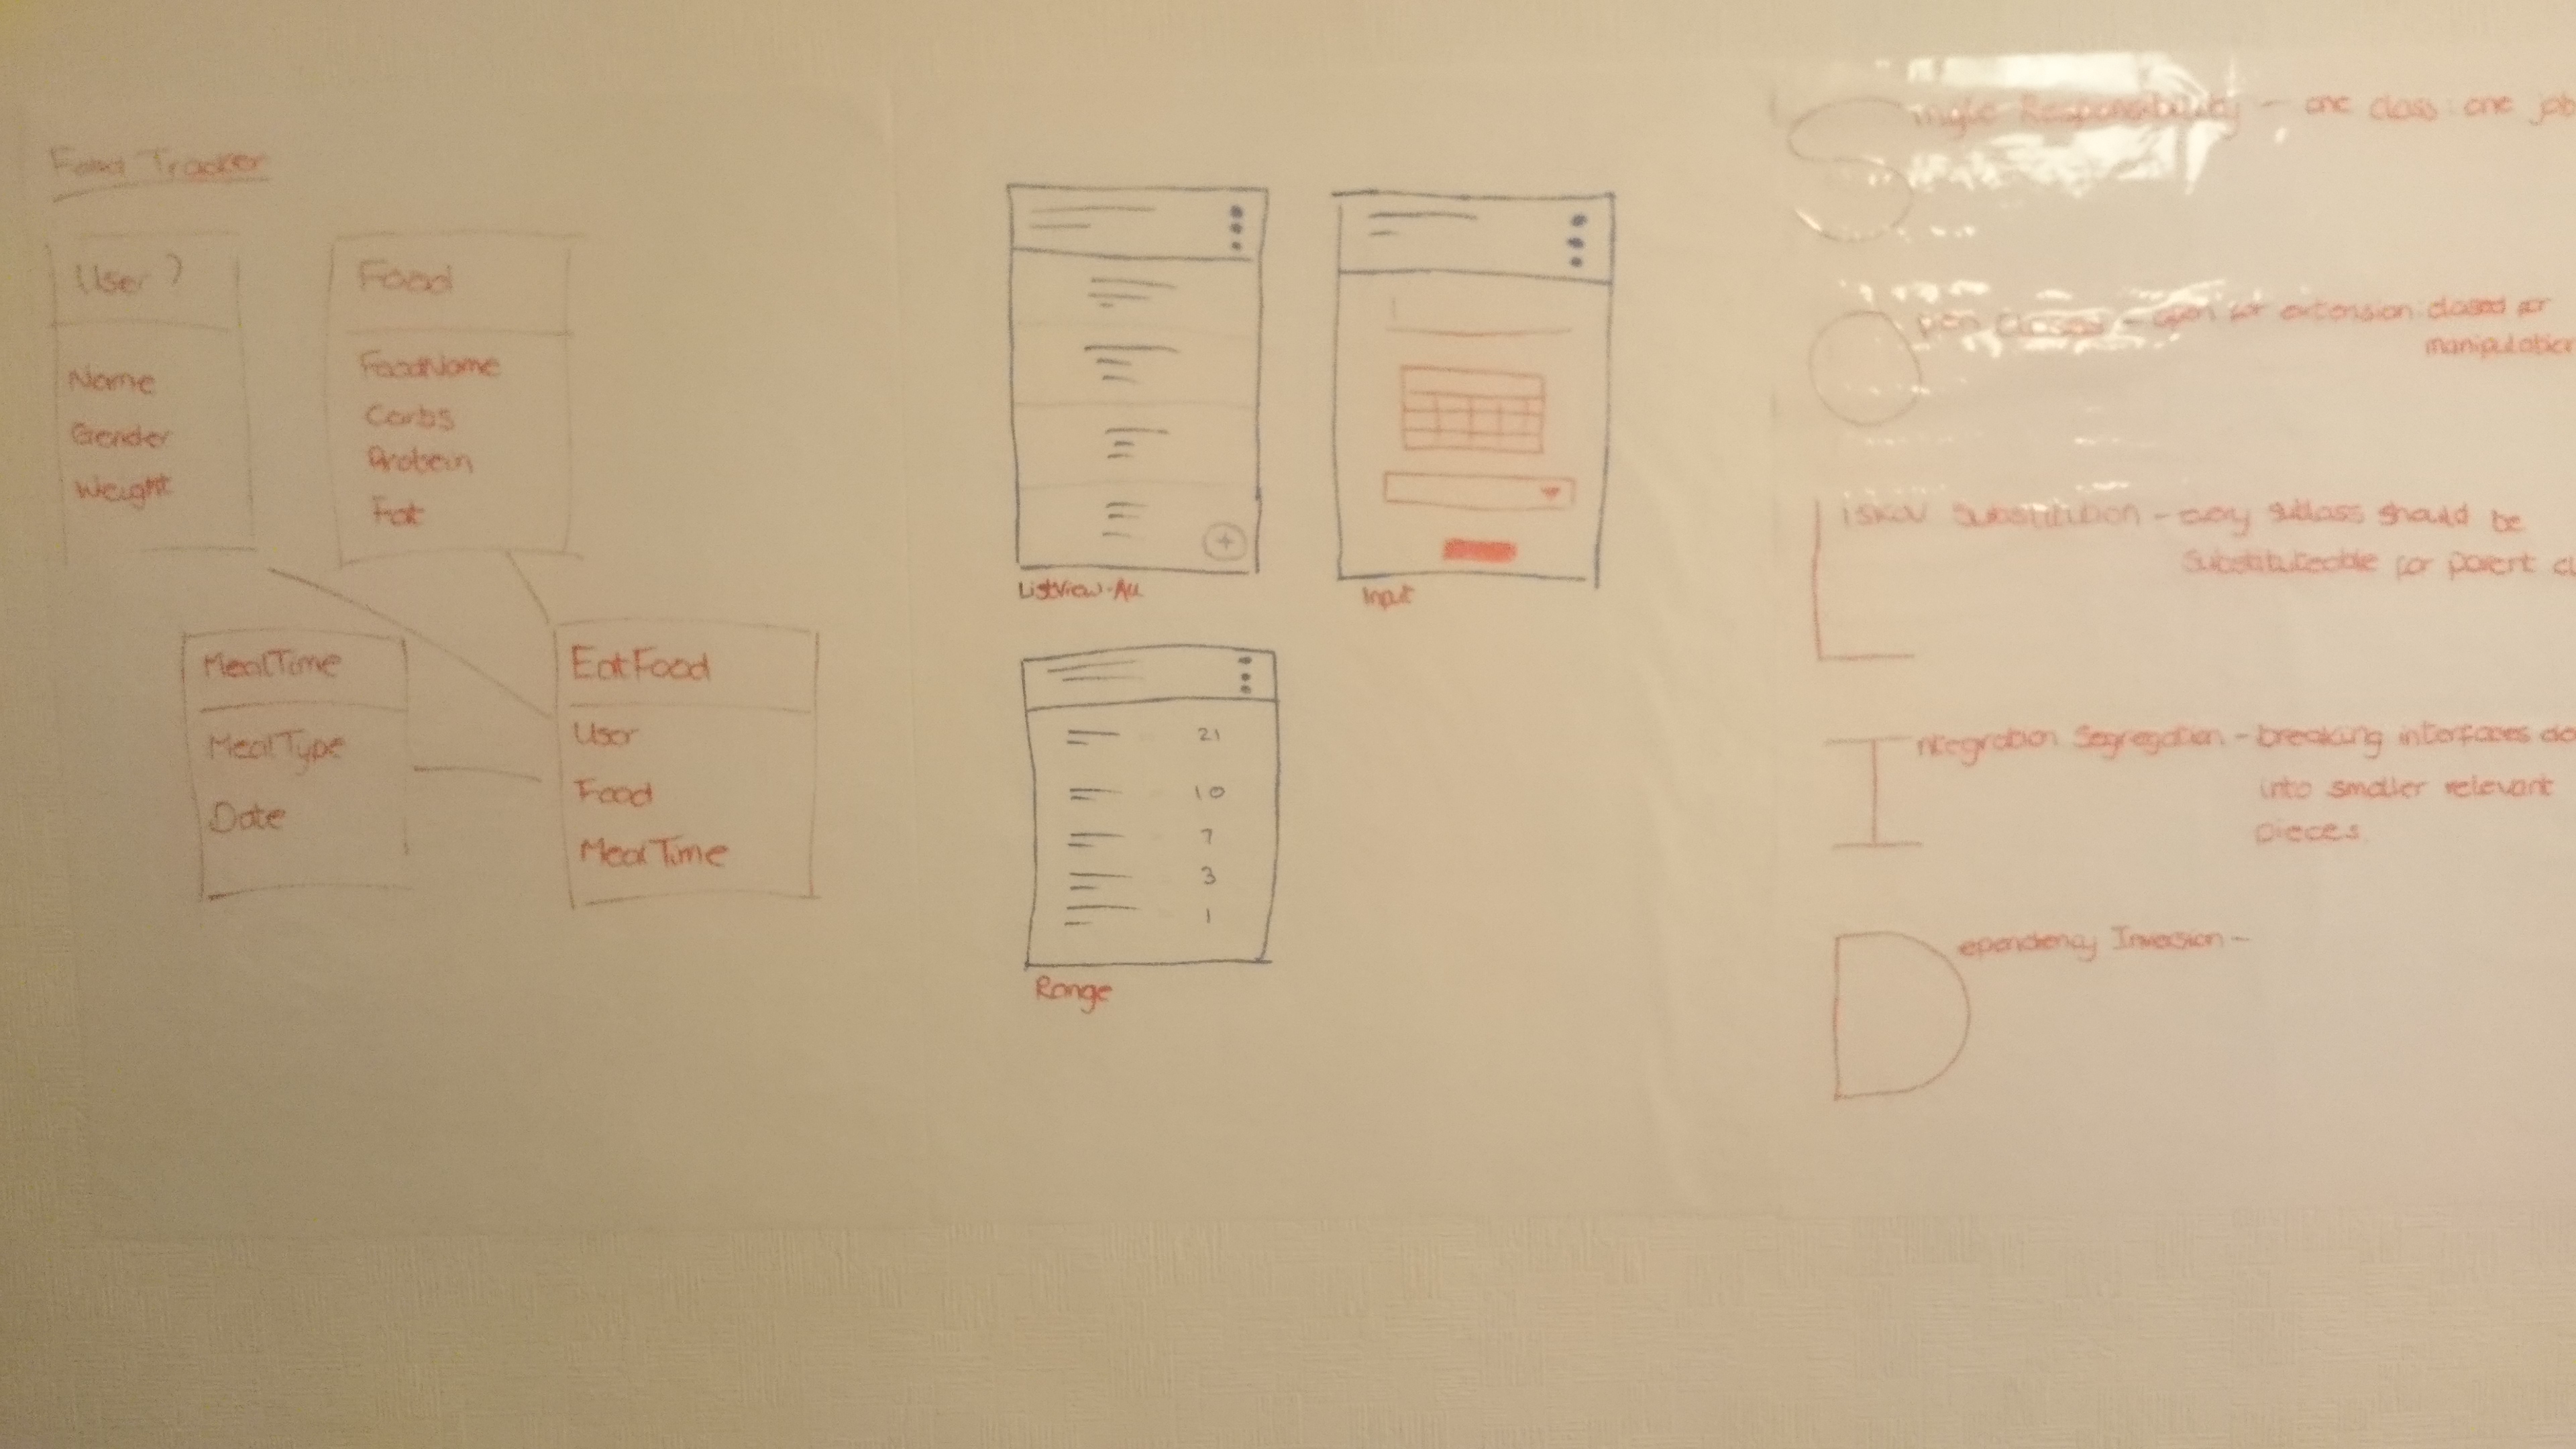 Food Tracker
User ?
Name
Gender
Weight
Food
FoodName
Carbs
Protein
Fat
MealTime
MealType
Date
EatFood
User
Food
MealTime
ListView-All
Input
21
10
7
3
1
Range
Single Responsibility - one class: one job
Open Closed - open for extension: closed for
manipulation
Liskov Substitution - every subclass should be
Substituteable for parent
Integration Segregation - breaking interfaces
into smaller relevant
pieces.
Dependency Inversion -